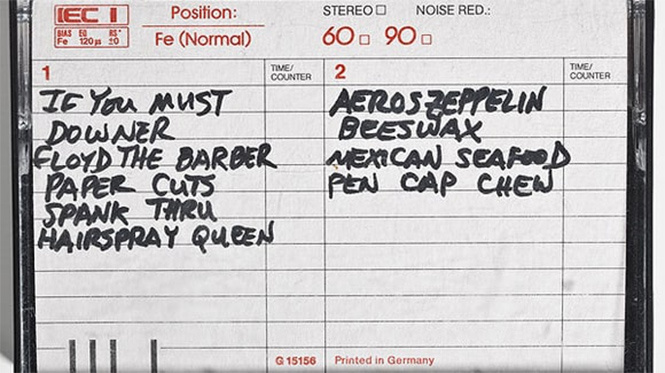 IEC I
Position:
STEREO
NOISE RED.:
BIAS EQ RS*
Fe 120µs ±0
Fe (Normal)
60 90
1
TIME/
COUNTER
2
TIME/
COUNTER
IF YOU MUST
DOWNER
FLOYD THE BARBER
PAPER CUTS
SPANK THRU
HAIRSPRAY QUEEN
AEROSZEPPELIN
BEESWAX
MEXICAN SEAFOOD
PEN CAP CHEW
G 15156
Printed in Germany